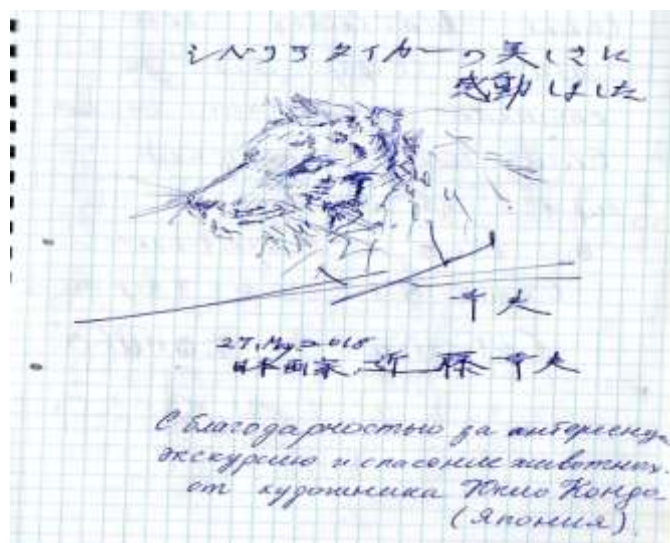 シベリアタイガーの美しさに
感動しました
幸夫
27, May 2018
日本画家 近藤幸夫
С благодарностью за интересную
экскурсию и спасение животных
от художника Юкио Кондо
(Япония)